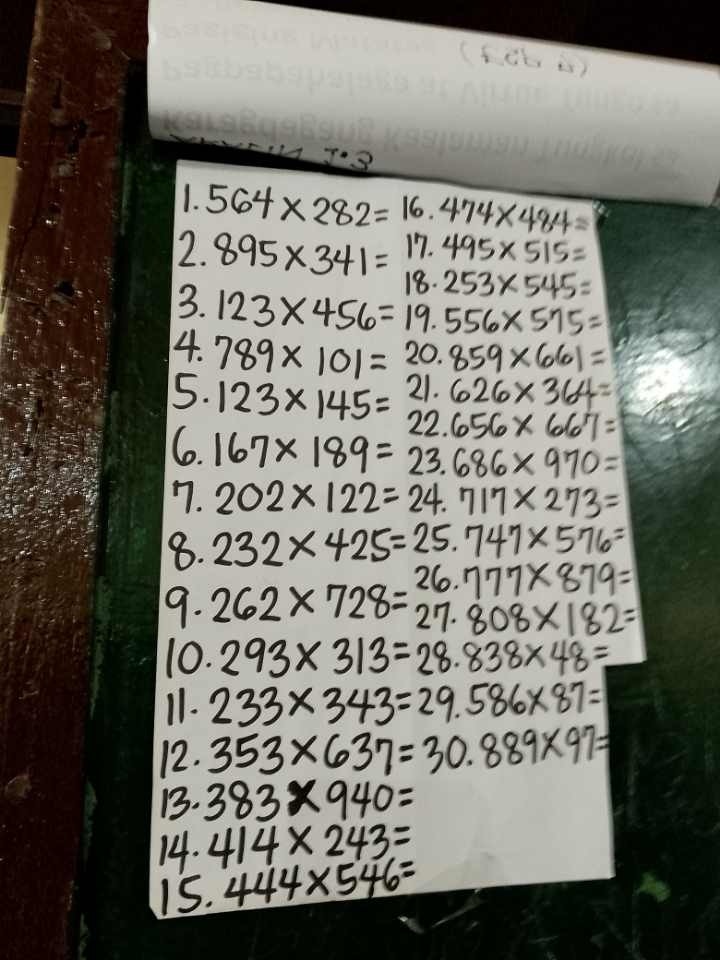 1. 564 x 282=
2. 895 x 341=
3. 123 x 456=
4. 789 x 101=
5. 123 x 145=
6. 167 x 189=
7. 202 x 122=
8. 232 x 425=
9. 262 x 728=
10. 293 x 313=
11. 233 x 343=
12. 353 x 637=
13. 383 x 940=
14. 414 x 243=
15. 444 x 546=
16. 474 x 484=
17. 495 x 515=
18. 253 x 545=
19. 556 x 575=
20. 859 x 661=
21. 626 x 364=
22. 656 x 667=
23. 686 x 970=
24. 717 x 273=
25. 747 x 576=
26. 777 x 879=
27. 808 x 182=
28. 838 x 48=
29. 586 x 87=
30. 889 x 97=